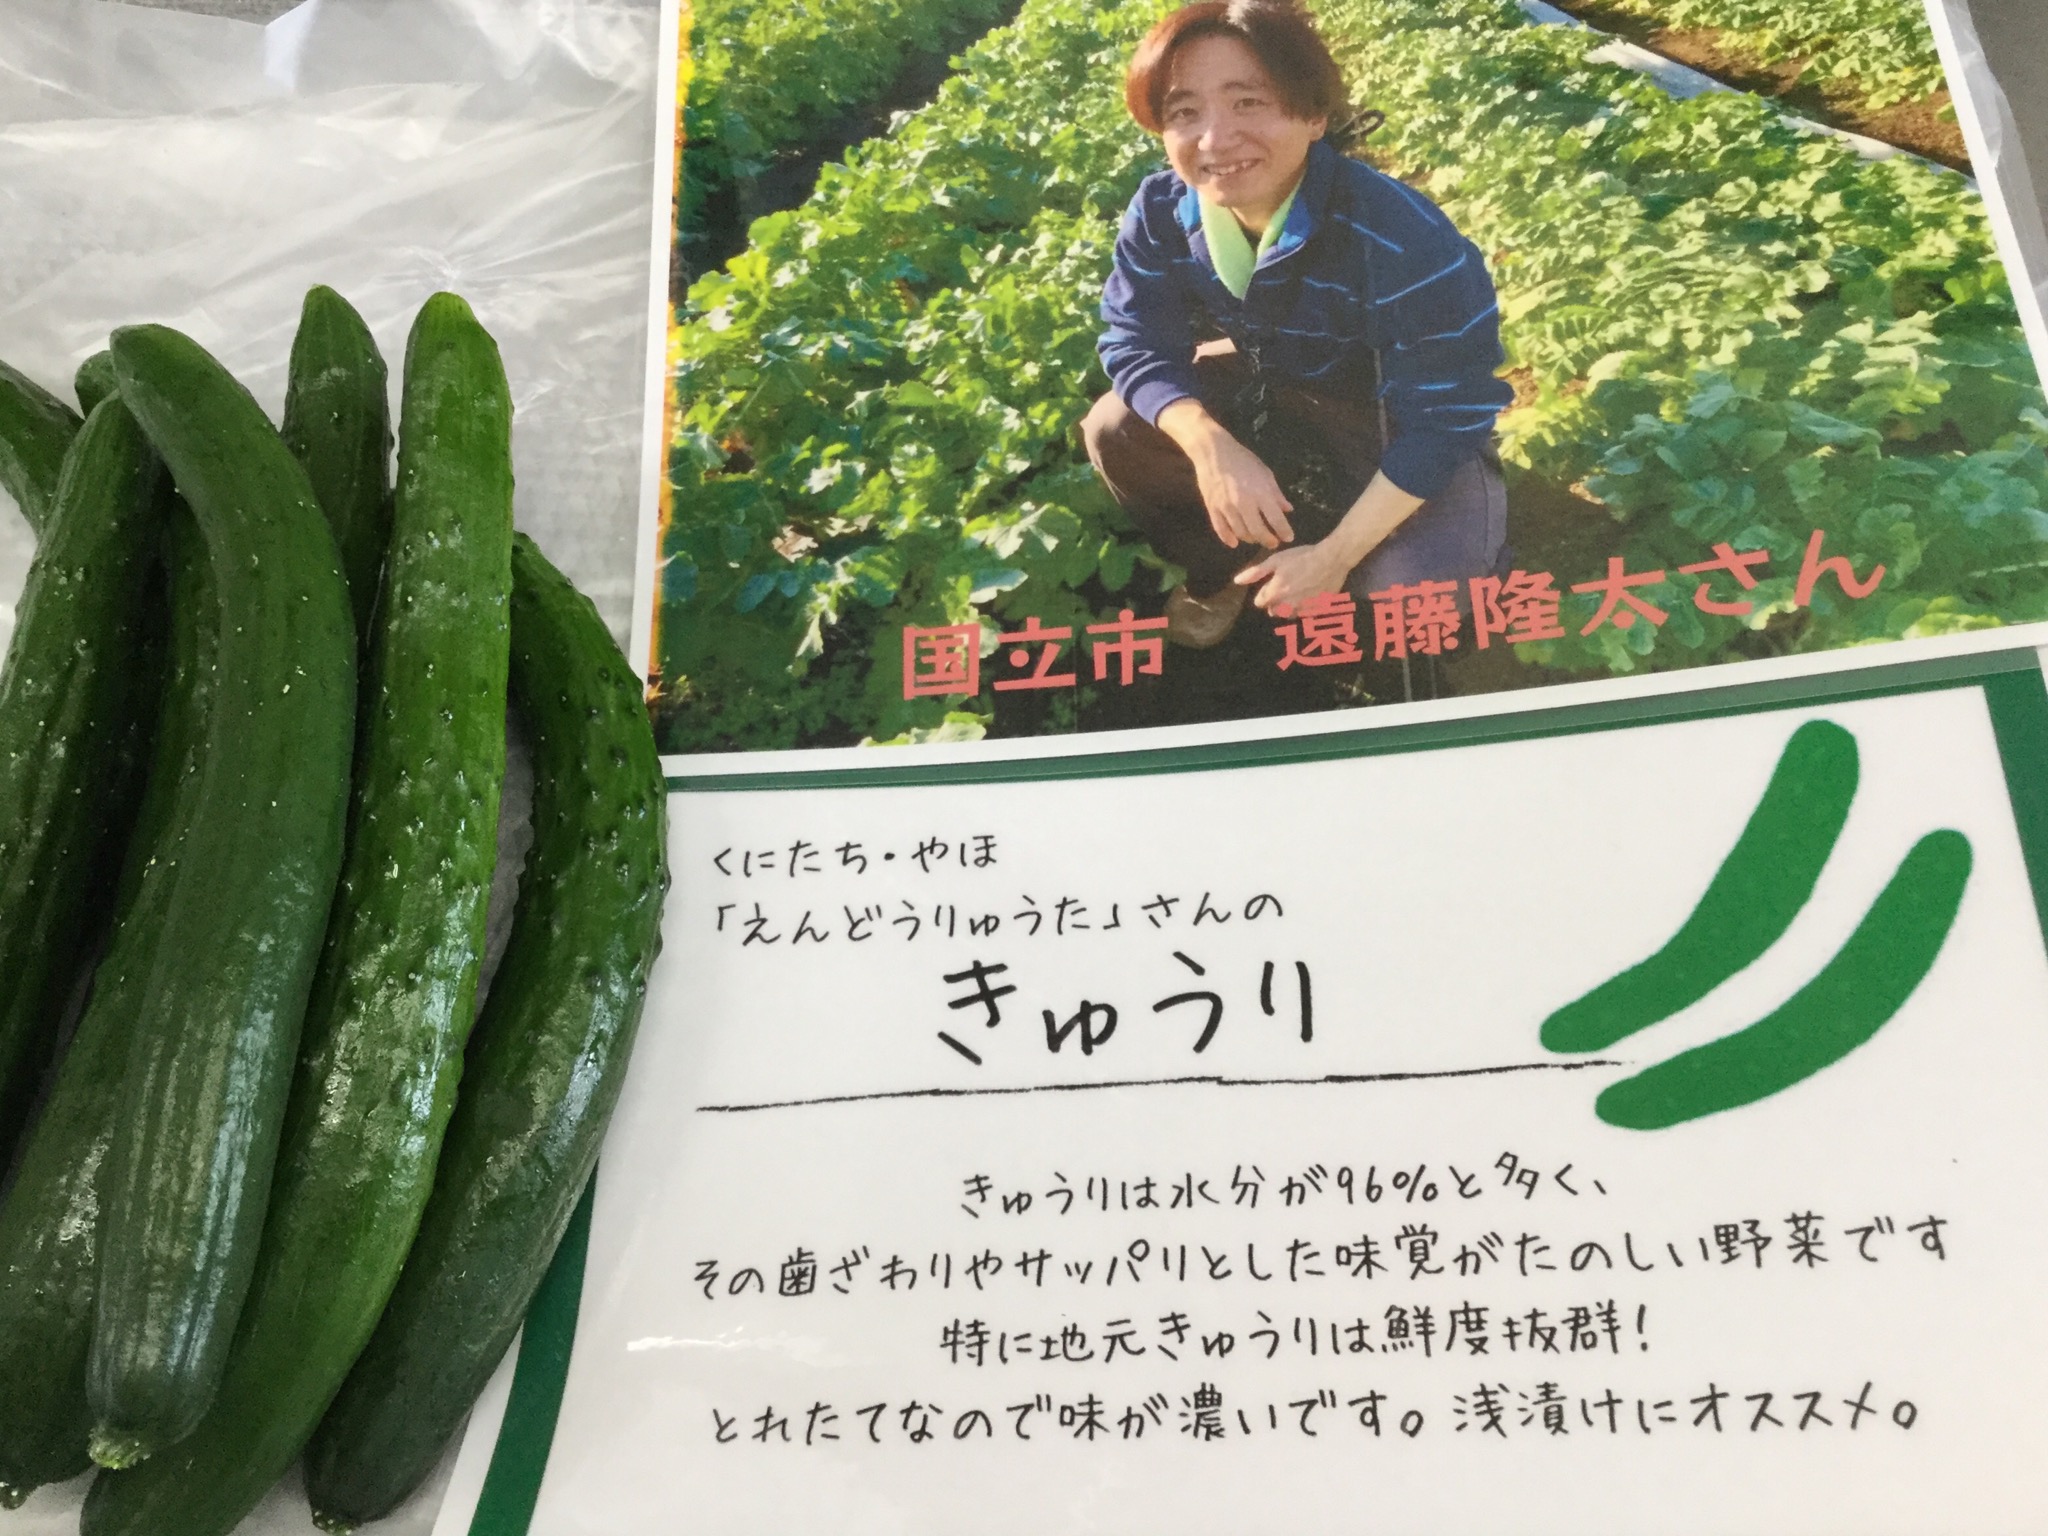 国立市 遠藤隆太さん
くにたち・やほ
「えんどうりゅうた」さんの
きゅうり
きゅうりは水分が96%と多く、
その歯ざわりやサッパリとした味覚がたのしい野菜です
特に地元きゅうりは鮮度抜群!
とれたてなので味が濃いです。浅漬けにオススメ。